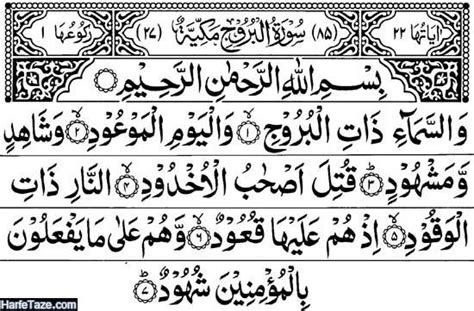 اٰيَاتُهَا ٢٢ (٨٥) سُوْرَةُ الْبُرُوْجِ مَكِّيَّةٌ (٢٧) رُكُوْعُهَا ١
بِسْمِ اللّٰهِ الرَّحْمٰنِ الرَّحِيْمِ
وَالسَّمَآءِ ذَاتِ الْبُرُوْجِ ۙ﴿١﴾ وَالْيَوْمِ الْمَوْعُوْدِ ۙ﴿٢﴾ وَشَاهِدٍ
وَّمَشْهُوْدٍ ؕ﴿٣﴾ قُتِلَ اَصْحٰبُ الْاُخْدُوْدِ ۙ﴿٤﴾ النَّارِ ذَاتِ
الْوَقُوْدِ ۙ﴿٥﴾ اِذْ هُمْ عَلَيْهَا قُعُوْدٌ ۙ﴿٦﴾ وَّهُمْ عَلٰى مَا يَفْعَلُوْنَ
بِالْمُؤْمِنِيْنَ شُهُوْدٌ ؕ﴿٧﴾
HarfeTaze.com